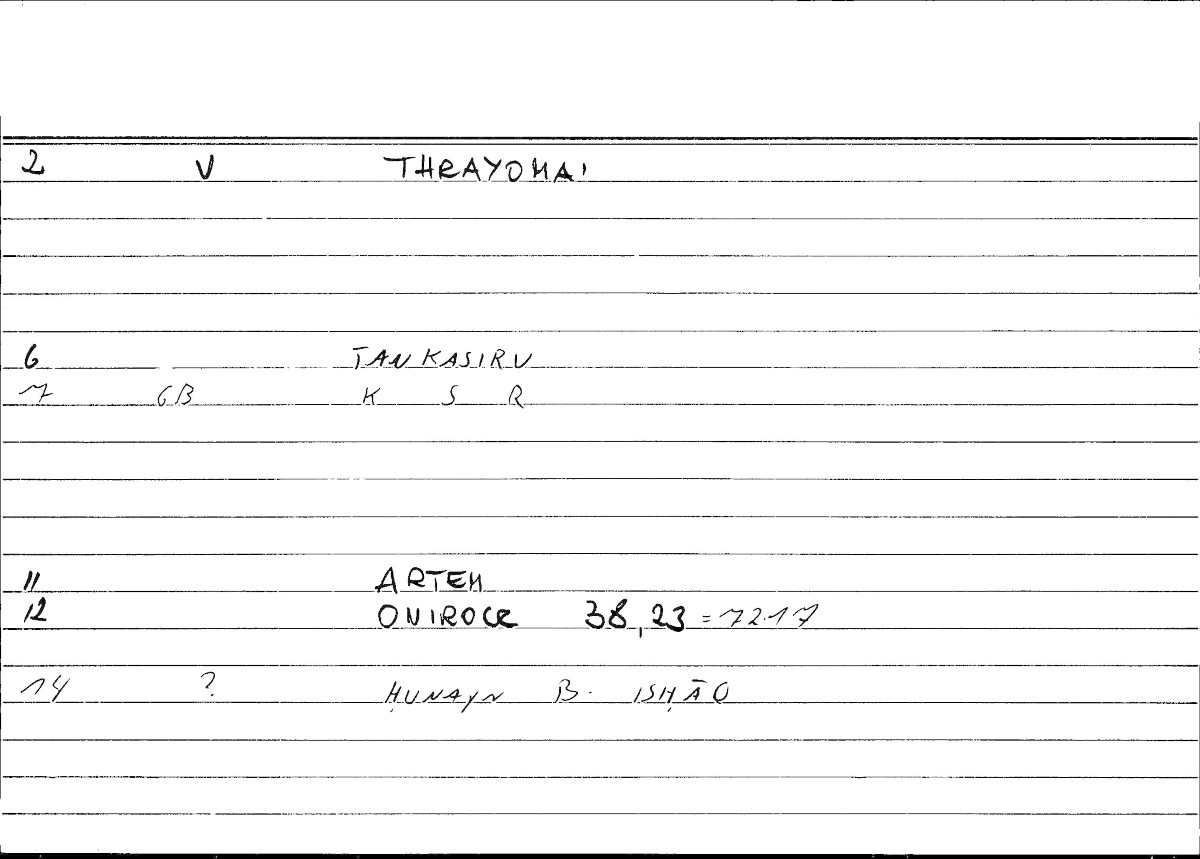 2 V THRAYOMAI
6 TANKASIRU
7 GB K S R
11 ARTEM
12 ONIROCR 38,23 = 72.17
14 ? ḤUNAYN B. ISḤĀQ